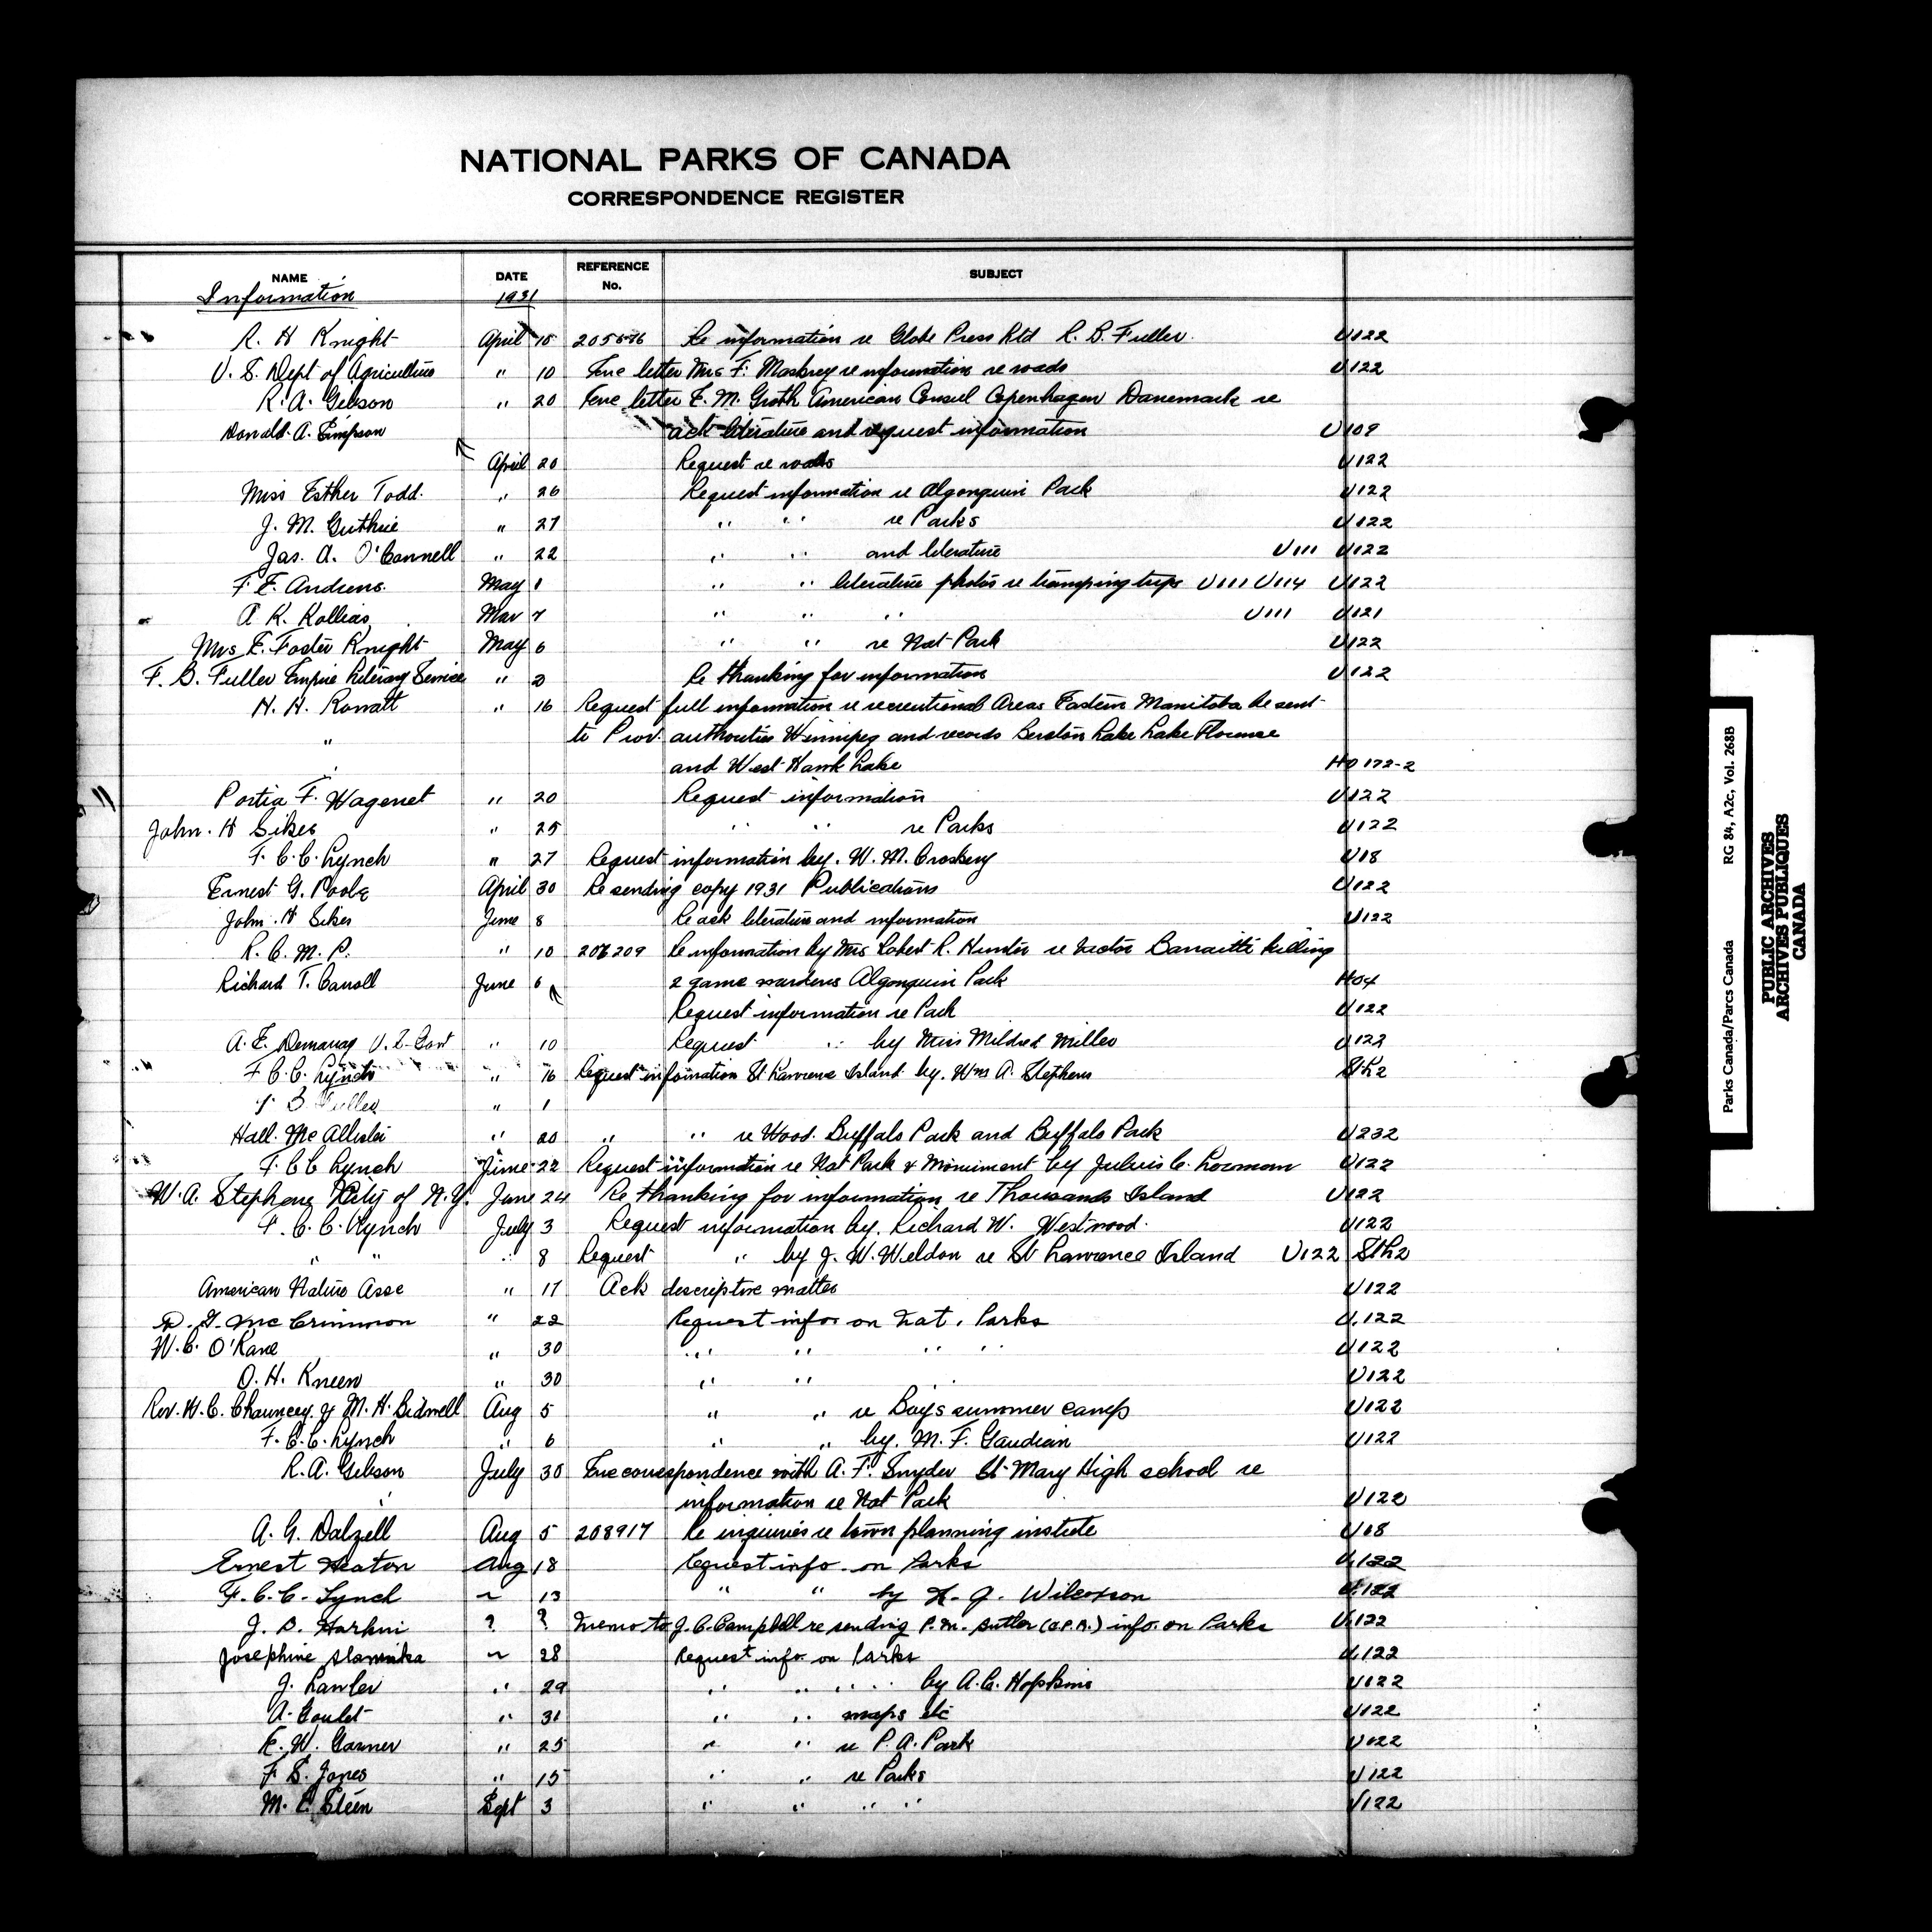 NATIONAL PARKS OF CANADA
CORRESPONDENCE REGISTER
NAME DATE REFERENCE No. SUBJECT
Information 1931
R. H Knight April 15 Re information re Globe Press Ltd R. B. Fuller. U122
U. S. Dept of Agriculture " 10 Enc letter Mrs F. re information re roads U122
R. A. Gibson " 20 Enc letter E. M. Groth American Consul Copenhagen Danemark re
Donald A. Simpson ack literature and request information U109
April 20 Request re roads U122
Miss Esther Todd. " 26 Request information re Algonquin Park U122
J. M. Guthrie " 27 " " re Parks U122
Jas. A. O'Connell " 22 " " and literature U111 U122
F. E. Andrews. May 1 " " literature photos re tramping trips U111 U114 U122
A K. Kollias Mar 7 " " " U111 U121
Mrs E. Foster Knight May 6 " " re Nat Park U122
F. B. Fuller Empire Literary Service " 2 Re thanking for information U122
H. H. Rowatt " 16 Request full information re recreational Areas Eastern Manitoba be sent
" to Prov. authorities Winnipeg and records Lake Lake Florence
" and West Hawk Lake H0 172-2
Portia F. Wagenet " 20 Request information U122
John. H Sikes " 25 " " re Parks U122
F. C. C. Lynch " 27 Request information by. W. M. Crosbery U18
Ernest G. Poole April 30 Re sending copy 1931 Publications U122
John. H Sikes June 8 Re ack literature and information U122
R. C. M. P. " 10 206209 Re information by Mrs Robert R. Hunter re Victor killing
Richard T. Carroll June 6 2 game wardens Algonquin Park H04
Request information re Park U122
A. E. Demaray U. S. Govt " 10 Request " by Miss Mildred Miller U122
F C. C. Lynch " 16 Request information St Lawrence Island by. Wm A. Stephens StL2
F B Fuller " 1
Hall. McAllister " 20 " " re Wood. Buffalo Park and Buffalo Park U232
F. C C Lynch June 22 Request information re Nat Park & Monument by Julius C. U122
W. A. Stephens City of N.Y. June 24 Re thanking for information re Thousands Island U122
F. C. C. Lynch July 3 Request information by. Richard W. Westwood. U122
" " " 8 Request " by J. W. Weldon re St Lawrence Island U122 StL2
American Nature Asse " 17 Ack descriptive matter U122
D. G. McCrimmon " 22 Request info on Nat. Parks U.122
W. C. O'Kane " 30 " " " " U122
O. H. Kneen " 30 " " " U122
Rev. H. C. Chauncey. & M. H. Bidwell Aug 5 " " re Boys summer camp U122
F. C. C. Lynch " 6 " " by. M. F. Gaudian U122
R. A. Gibson July 30 Enc correspondence with A. F. Snyder St Mary High school re
information re Nat Park U122
A. G. Dalzell Aug 5 208917 Re inquiries re town planning instute U18
Ernest Heaton Aug 18 Request info on Parks U.122
F. C. C. Lynch " 13 " " by K. J. Wilcoxson U.122
J. B. Harkin ? ? Memo to J. C. Campbell re sending P. M. Butler (C.P.R.) info. on Parks U.122
Josephine " 28 Request info on Parks U.122
J. Lawler " 29 " " " " by A. C. Hopkins U122
A. Goulet " 31 " " maps etc U122
K. W. Garner " 25 " " re P. A. Park U122
F. S. Jones " 15 " " re Parks U122
M. E. Steen Sept 3 " " " " U122
Parks Canada/Parcs Canada RG 84, A2c, Vol. 268B
PUBLIC ARCHIVES
ARCHIVES PUBLIQUES
CANADA